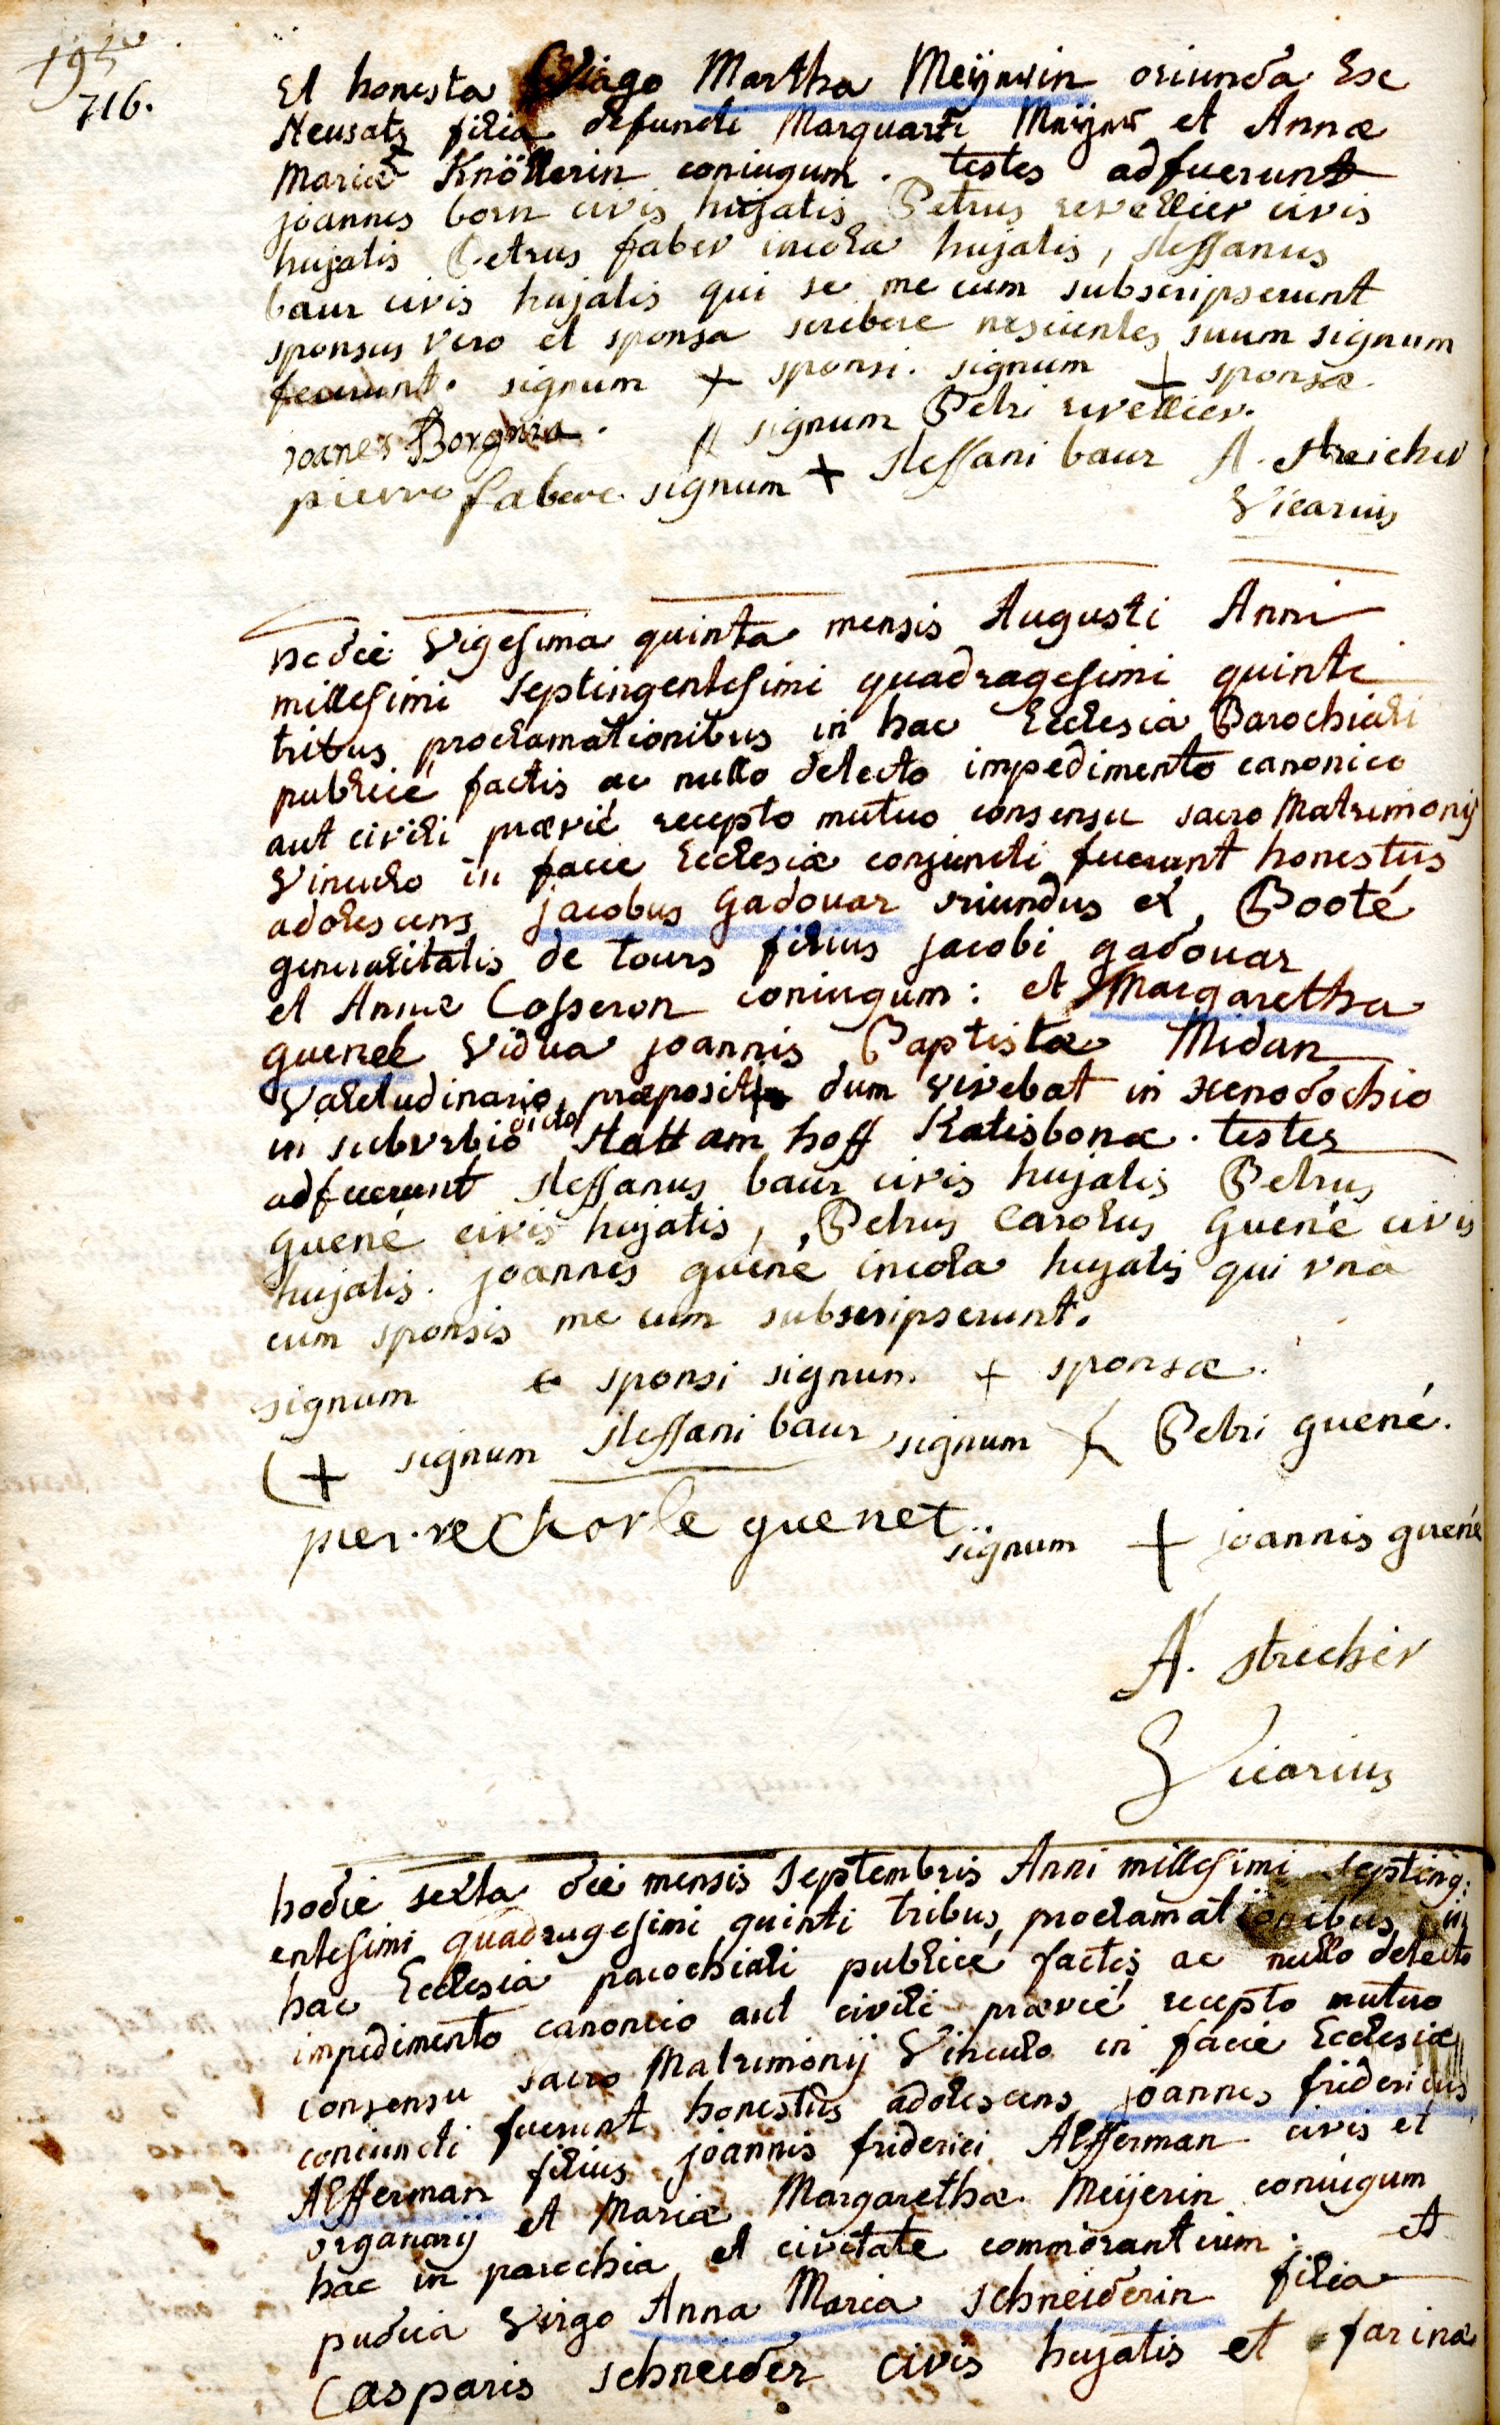 195
716.
Et honesta Virgo Martha Meÿnrin oriunda Ex
Neusatz filia defuncti Marquarti Meÿnr et Annæ
Mariæ Knöllerin coniugum. testes adfuerunt
joannes born civis hujatis Petrus revellier civis
hujatis Petrus faber incola hujatis, steffanus
baur civis hujatis qui se me cum subscripserunt
sponsus vero et sponsa scribere nescientes suum signum
fecerunt. signum + sponsi. signum + sponsæ.
signum Petri revellier.
joanes Borgnia.
pierre fabere. signum + steffani baur A. streicher
Vicarius
hodie vigesima quinta mensis Augusti Anni
millesimi septingentesimi quadragesimi quinti
tribus proclamationibus in hac Ecclesia Parochiali
publicé factis ac nullo detecto impedimento canonico
aut civili prævié recepto mutuo consensu sacro Matrimonij
Vinculo in facie Ecclesiæ conjuncti fuerunt honestus
adolescens jacobus gadouar oriundus ex Pooté
generalitatis de tours filius jacobi gadouar
et Annæ Cosseron coniugum: et Margaretha
gueneé vidua joannis Baptistæ Midan
Valetudinario præpositi dum vivebat in xenodochio
in suburbio dicto statt am hoff Ratisbonæ. testes
adfuerunt steffanus baur civis hujatis Petrus
guené civis hujatis, Petrus Carolus Guené civis
hujatis. joannes guené incola hujatis qui una
cum sponsis me cum subscripserunt.
signum + sponsi signum + sponsæ.
+ signum steffani baur signum + Petri guené.
pier.re Chorle guenet
signum + joannis guené
A. streicher
Vicarius
hodie sexta die mensis Septembris Anni millesimi septing:
entesimi quadragesimi quinti tribus proclamationibus in
hac Ecclesia parochiali publicé factis ac nullo detecto
impedimento canonico aut civili prævié recepto mutuo
consensu sacro Matrimonij Vinculo in facie Ecclesiæ
coniuncti fuerunt honestus adolescens joannes fridericus
Alfferman filius joannis friderici Alfferman civis et
organarij et Mariæ Margarethæ Meÿerin coniugum
hac in parochia et civitate commorantium: et
pudica Virgo Anna Maria schneiderin filia
Casparis schneider civis hujatis et farinæ